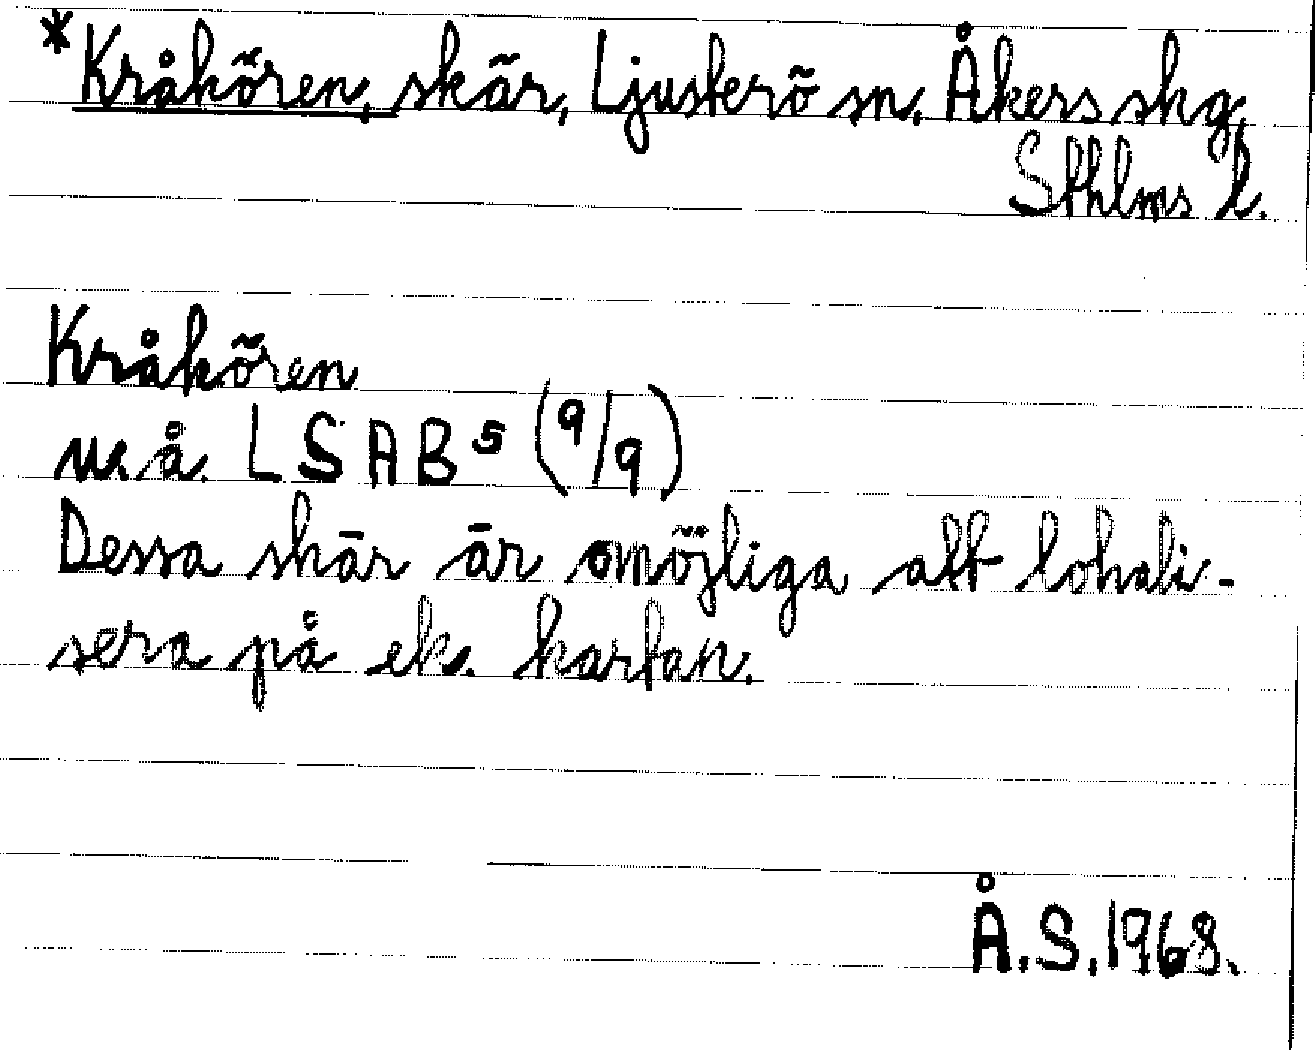 *Kråkören, skär, Ljusterö sn, Åkers skg,
Sthlms l.
Kråkören
u.å. LSA B⁵ (9/9)
Dessa skär är omöjliga att lokali-
sera på ek. kartan.
Å.S. 1968.